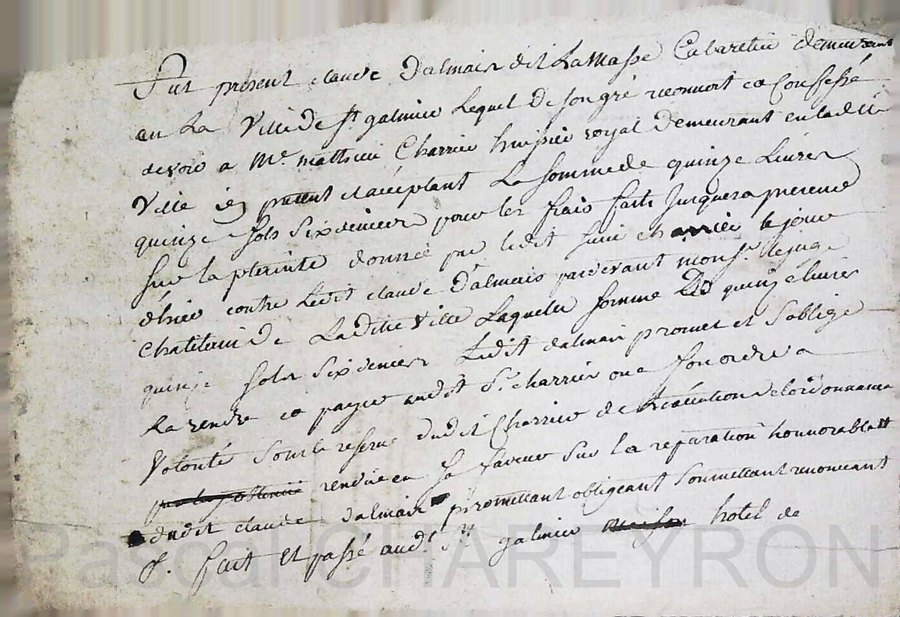 Fut présent claude Dalmais dit LaMasse Cabaretier demeurant
en La Ville de St galmier Lequel de son gré reconnoit et Confesse
devoir a Me mathieu Charrier huissier royal Demeurant en ladite
Ville icy présent et acceptant La somme de quinze Livres
quinze sols six deniers pour les frais faits jusques a présent
sur la plainte donnée par ledit sieur charrier le jour
d'hier contre Ledit claude Dalmais pardevant monsr. le juge
Chatelain de Ladite Ville Laquelle somme de quinze livres
quinze sols six deniers Ledit dalmais promet et s'oblige
La rendre et payer audit Sr. charrier ou a son ordre a
Volonté Sous la réserve dudit Charrier de L'exécution de l'ordonnance
rendue en sa faveur sur la réparation honnorable
dudit claude dalmais promettant obligeant soumettant renonceant
&. fait et passé audt. St. galmier maison hotel de
Pascal CHAREYRON